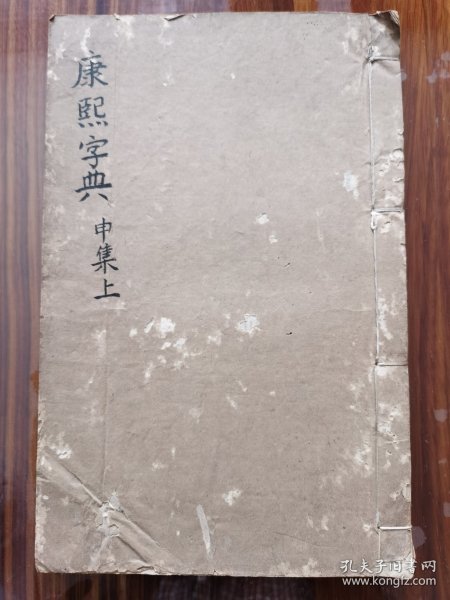 康熙字典
申集上
孔夫子旧书网
www.kongfz.com